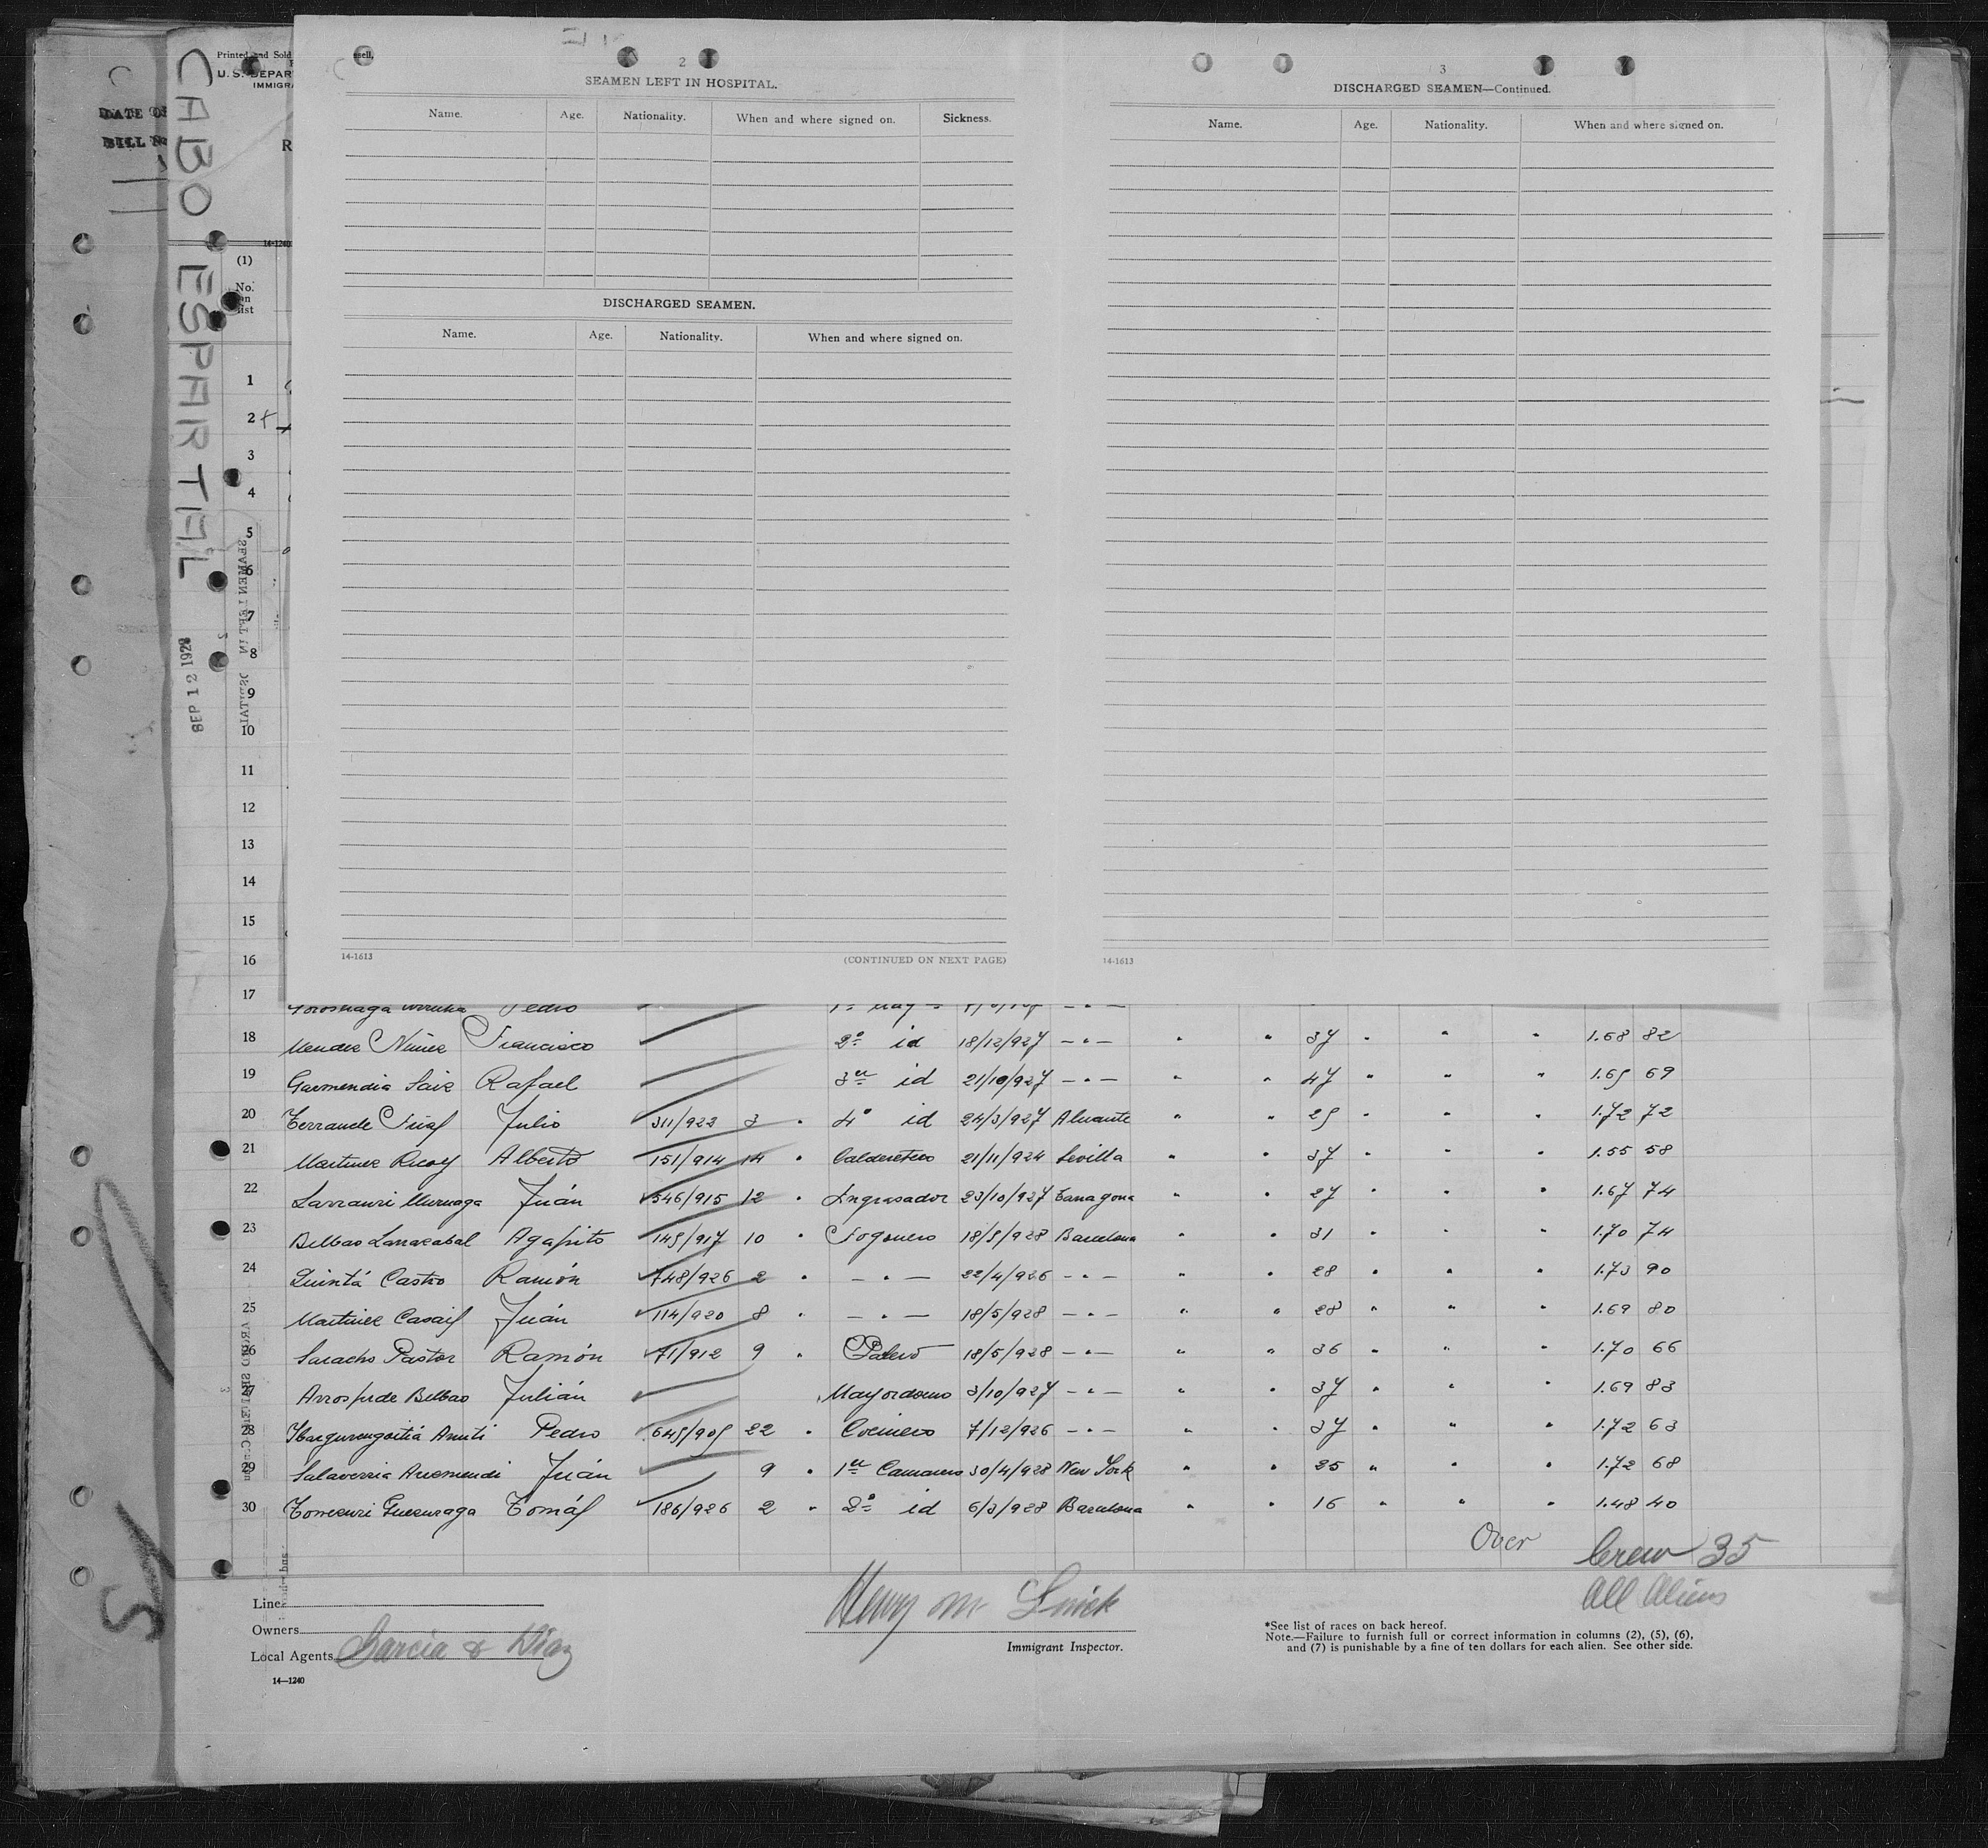 CABO ESPARTEL
SEP 12 1928
DATE OF
BILL No
Printed and Sold
U. S. DEPAR
IMMIGRA
14-1240
(1)
No. on list
2
SEAMEN LEFT IN HOSPITAL.
Name. Age. Nationality. When and where signed on. Sickness.
DISCHARGED SEAMEN.
Name. Age. Nationality. When and where signed on.
14-1613 (CONTINUED ON NEXT PAGE)
3
DISCHARGED SEAMEN—Continued.
Name. Age. Nationality. When and where signed on.
14-1613
1
2
3
4
5
6
7
8
9
10
11
12
13
14
15
16
17 Pedro
18 Mendez Núñez Francisco 2º id 18/12/927 — " — " " 37 " " " 1.68 82
19 Garmendia Saiz Rafael 3er id 21/10/927 — " — " " 47 " " " 1.65 69
20 Julio 311/922 3 " 4º id 24/3/927 Alicante " " 25 " " " 1.72 72
21 Martinez Alberto 151/914 14 " Calderetero 21/11/924 Sevilla " " 37 " " " 1.55 58
22 Larrauri Muruaga Juán 546/915 12 " Engrasador 23/10/927 Tarragona " " 27 " " " 1.67 74
23 Bilbao Larrazabal Agapito 145/917 10 " Fogonero 18/5/928 Barcelona " " 31 " " " 1.70 74
24 Quintá Castro Ramón 748/926 2 " — " — 22/4/926 — " — " " 28 " " " 1.73 90
25 Martinez Casais Juán 114/920 8 " — " — 18/5/928 — " — " " 28 " " " 1.69 80
26 Saracho Pastor Ramón 71/912 9 " Palero 18/5/928 — " — " " 36 " " " 1.70 66
27 Arrospide Bilbao Julián Mayordomo 3/10/927 — " — " " 37 " " " 1.69 83
28 Ibargurengoitia Pedro 645/905 22 " Cocinero 7/12/926 — " — " " 37 " " " 1.72 63
29 Salaverria Arizmendi Juán 9 " 1er Camarero 30/4/928 New York " " 25 " " " 1.72 68
30 Tomás 186/926 2 " 2º id 6/3/928 Barcelona " " 16 " " " 1.48 40
Over Crew 35
All Aliens
Line
Owners
Local Agents Garcia & Diaz
14—1240
Immigrant Inspector.
*See list of races on back hereof.
Note.—Failure to furnish full or correct information in columns (2), (5), (6),
and (7) is punishable by a fine of ten dollars for each alien. See other side.